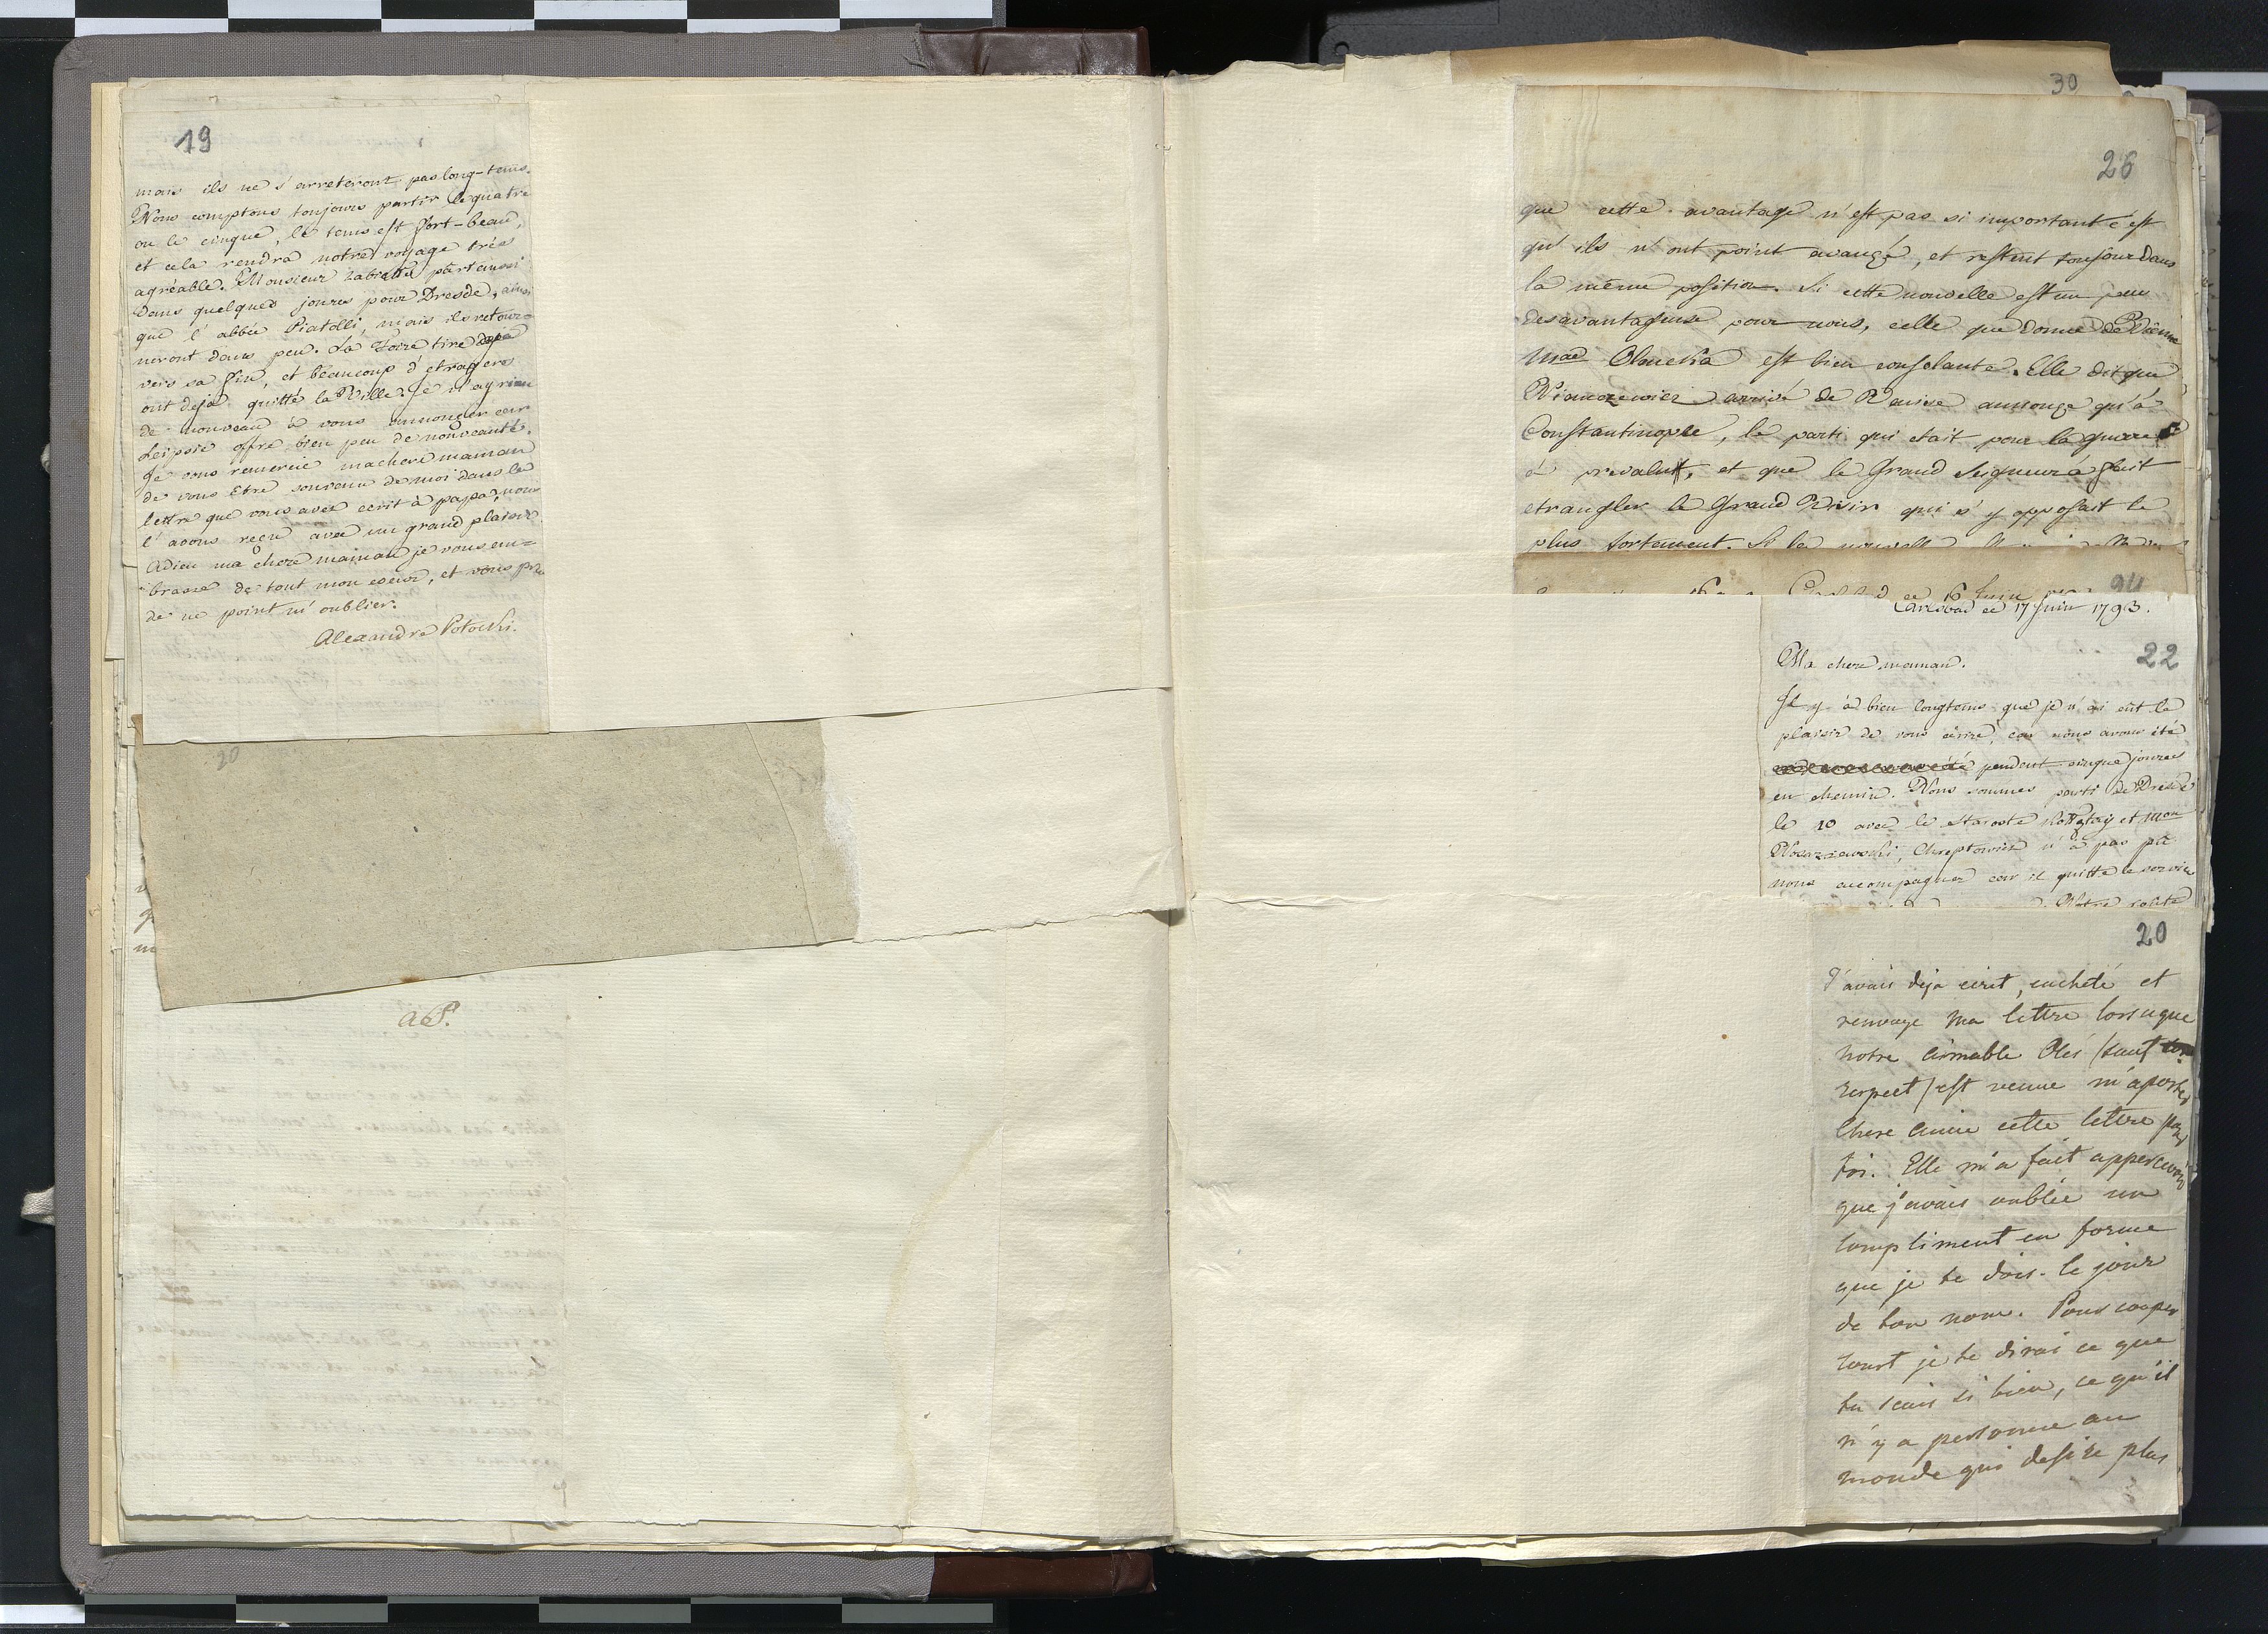 19
mais ils ne s'arreteront pas long-tems.
Nous comptons toujours partir le quatre
ou le cinque, le tems est fort-beau,
et cela rendra notre voyage très
agréable. Monsieur part aussi
dans quelques joures pour Dresde, ainsi
que l'abbée Piatolli, mais ils retour=
neront dans peu. La Foire tire deja
vers sa fin, et beaucoup d'etragers
ont deja quitté la Ville. Je n'ay rien
de nouveau à vous annonçer car
Leipsic offre bien peu de nouveauté.
Je vous remercie ma chere maman
de vous etre souvenu de moi dans la
lettre que vous avez ecrit à papa, nous
l'avons reçu avec un grand plaisir.
Adieu ma chere maman je vous em=
brasse de tout mon coeur, et vous prie
de ne point m'oublier.
Alexandre Potocki.
20
a P.
30
26
que cette avantage n'est pas si important c'est
qu'ils n'ont point avançé, et restent toujour dans
la même position. Si cette nouvelle est un peu
desavantageuse pour nous, celle que donne de Vienne
Mad est bien consolante. Elle dit que
arrivé de annonçe qu'à
Constantinople, le parti qui etait pour la guerre
à prevalut, et que le Grand Seigneur à fait
etrangler le Grand Visir qui s'y opposait le
plus fortement. Si les
24
ce 16 Juin
Carlsbad ce 17 Juin 1793.
22
Ma chere maman.
Il y à bien longtems que je n'ai eût le
plaisir de vous écrire, car nous avons été
pendent cinque joures
en chemin. Nous sommes parti de Dresde
le 10 avec le Staroste et Mon
Chreptowicz n'à pas pû
nous accompagner car il quitte le service
20
J'avais deja ecrit, cacheté et
renvoye ma lettre lorsque
notre aimable (sauf
respect) est venue m'aporter
chere amie cette lettre pour
toi. Elle m'a fait appercevoir
que j'avais oublié un
compliment en forme
que je te dois. le jour
de ton nom. Pour couper
court je te dirai ce que
tu scais si bien, ce qu'il
n'y a personne au
monde qui desire plus